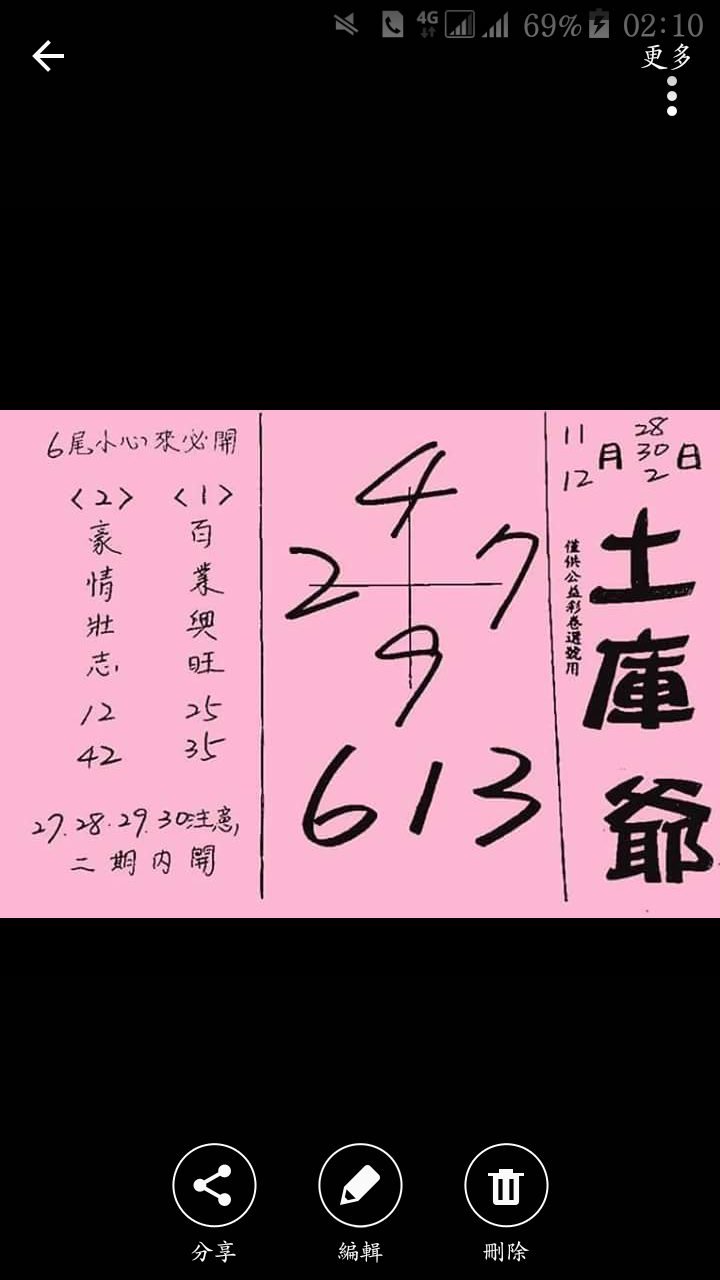 4G 69% 02:10
更多
11 28
月 30 日
12 2
土庫爺
僅供公益彩卷選號用
4
2 7
9
613
6尾小心來必開
<1>
百業興旺
25
35
<2>
豪情壯志
12
42
27.28.29.30注意,
二期内開
分享 編輯 刪除